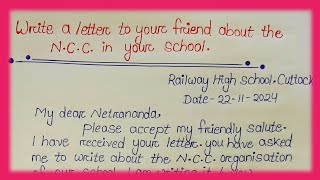 Write a letter to your friend about the
N.C.C. in your school.
Railway High School, Cuttack
Date- 22-11-2024
My dear Netrananda,
Please accept my friendly salute.
I have received your letter. you have asked
me to write about the N.C.C. organisation
of our school. I am writing it